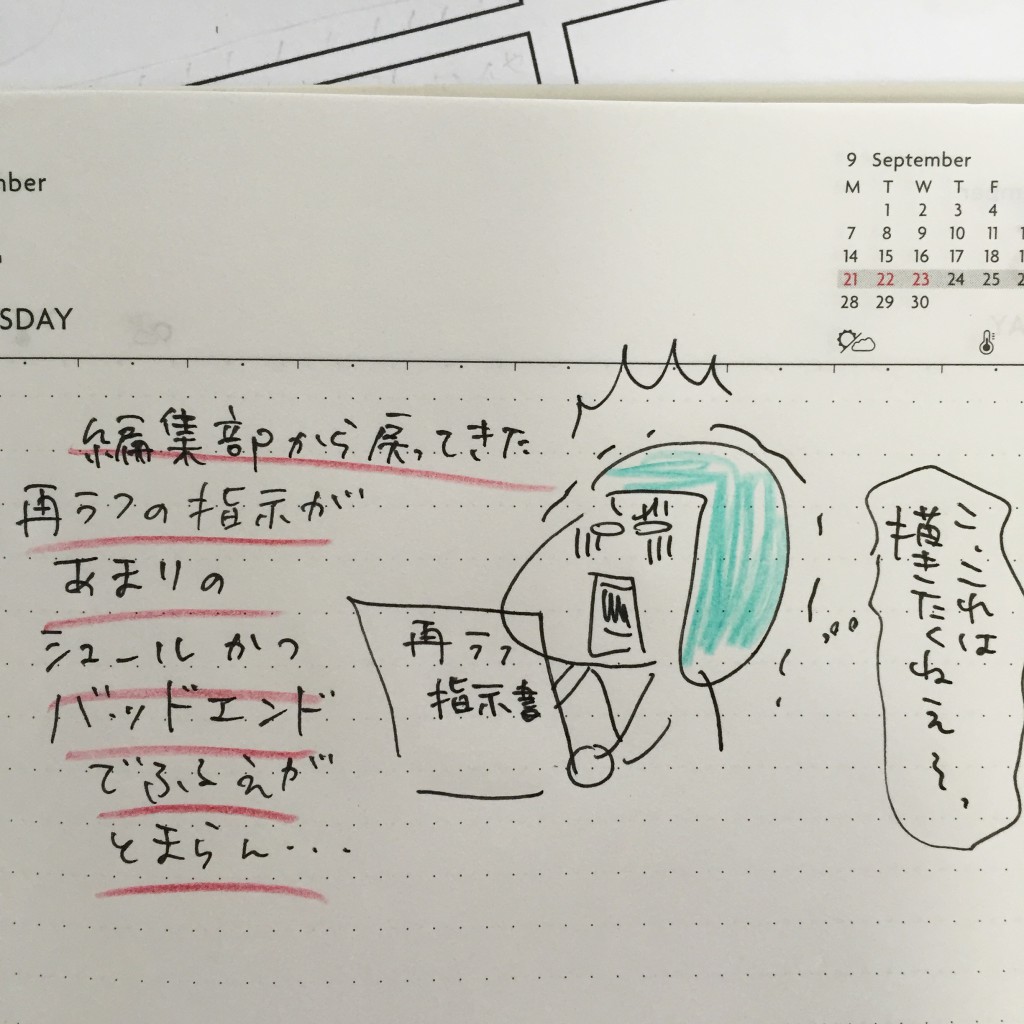 mber
SDAY
9 September
M T W T F
1 2 3 4
7 8 9 10 11 1
14 15 16 17 18 1
21 22 23 24 25 2
28 29 30
編集部から戻ってきた
再ラフの指示が
あまりの
シュールかつ
バッドエンド
でふるえが
とまらん...
再ラフ
指示書
こ、これは
描きたくねえぞ、